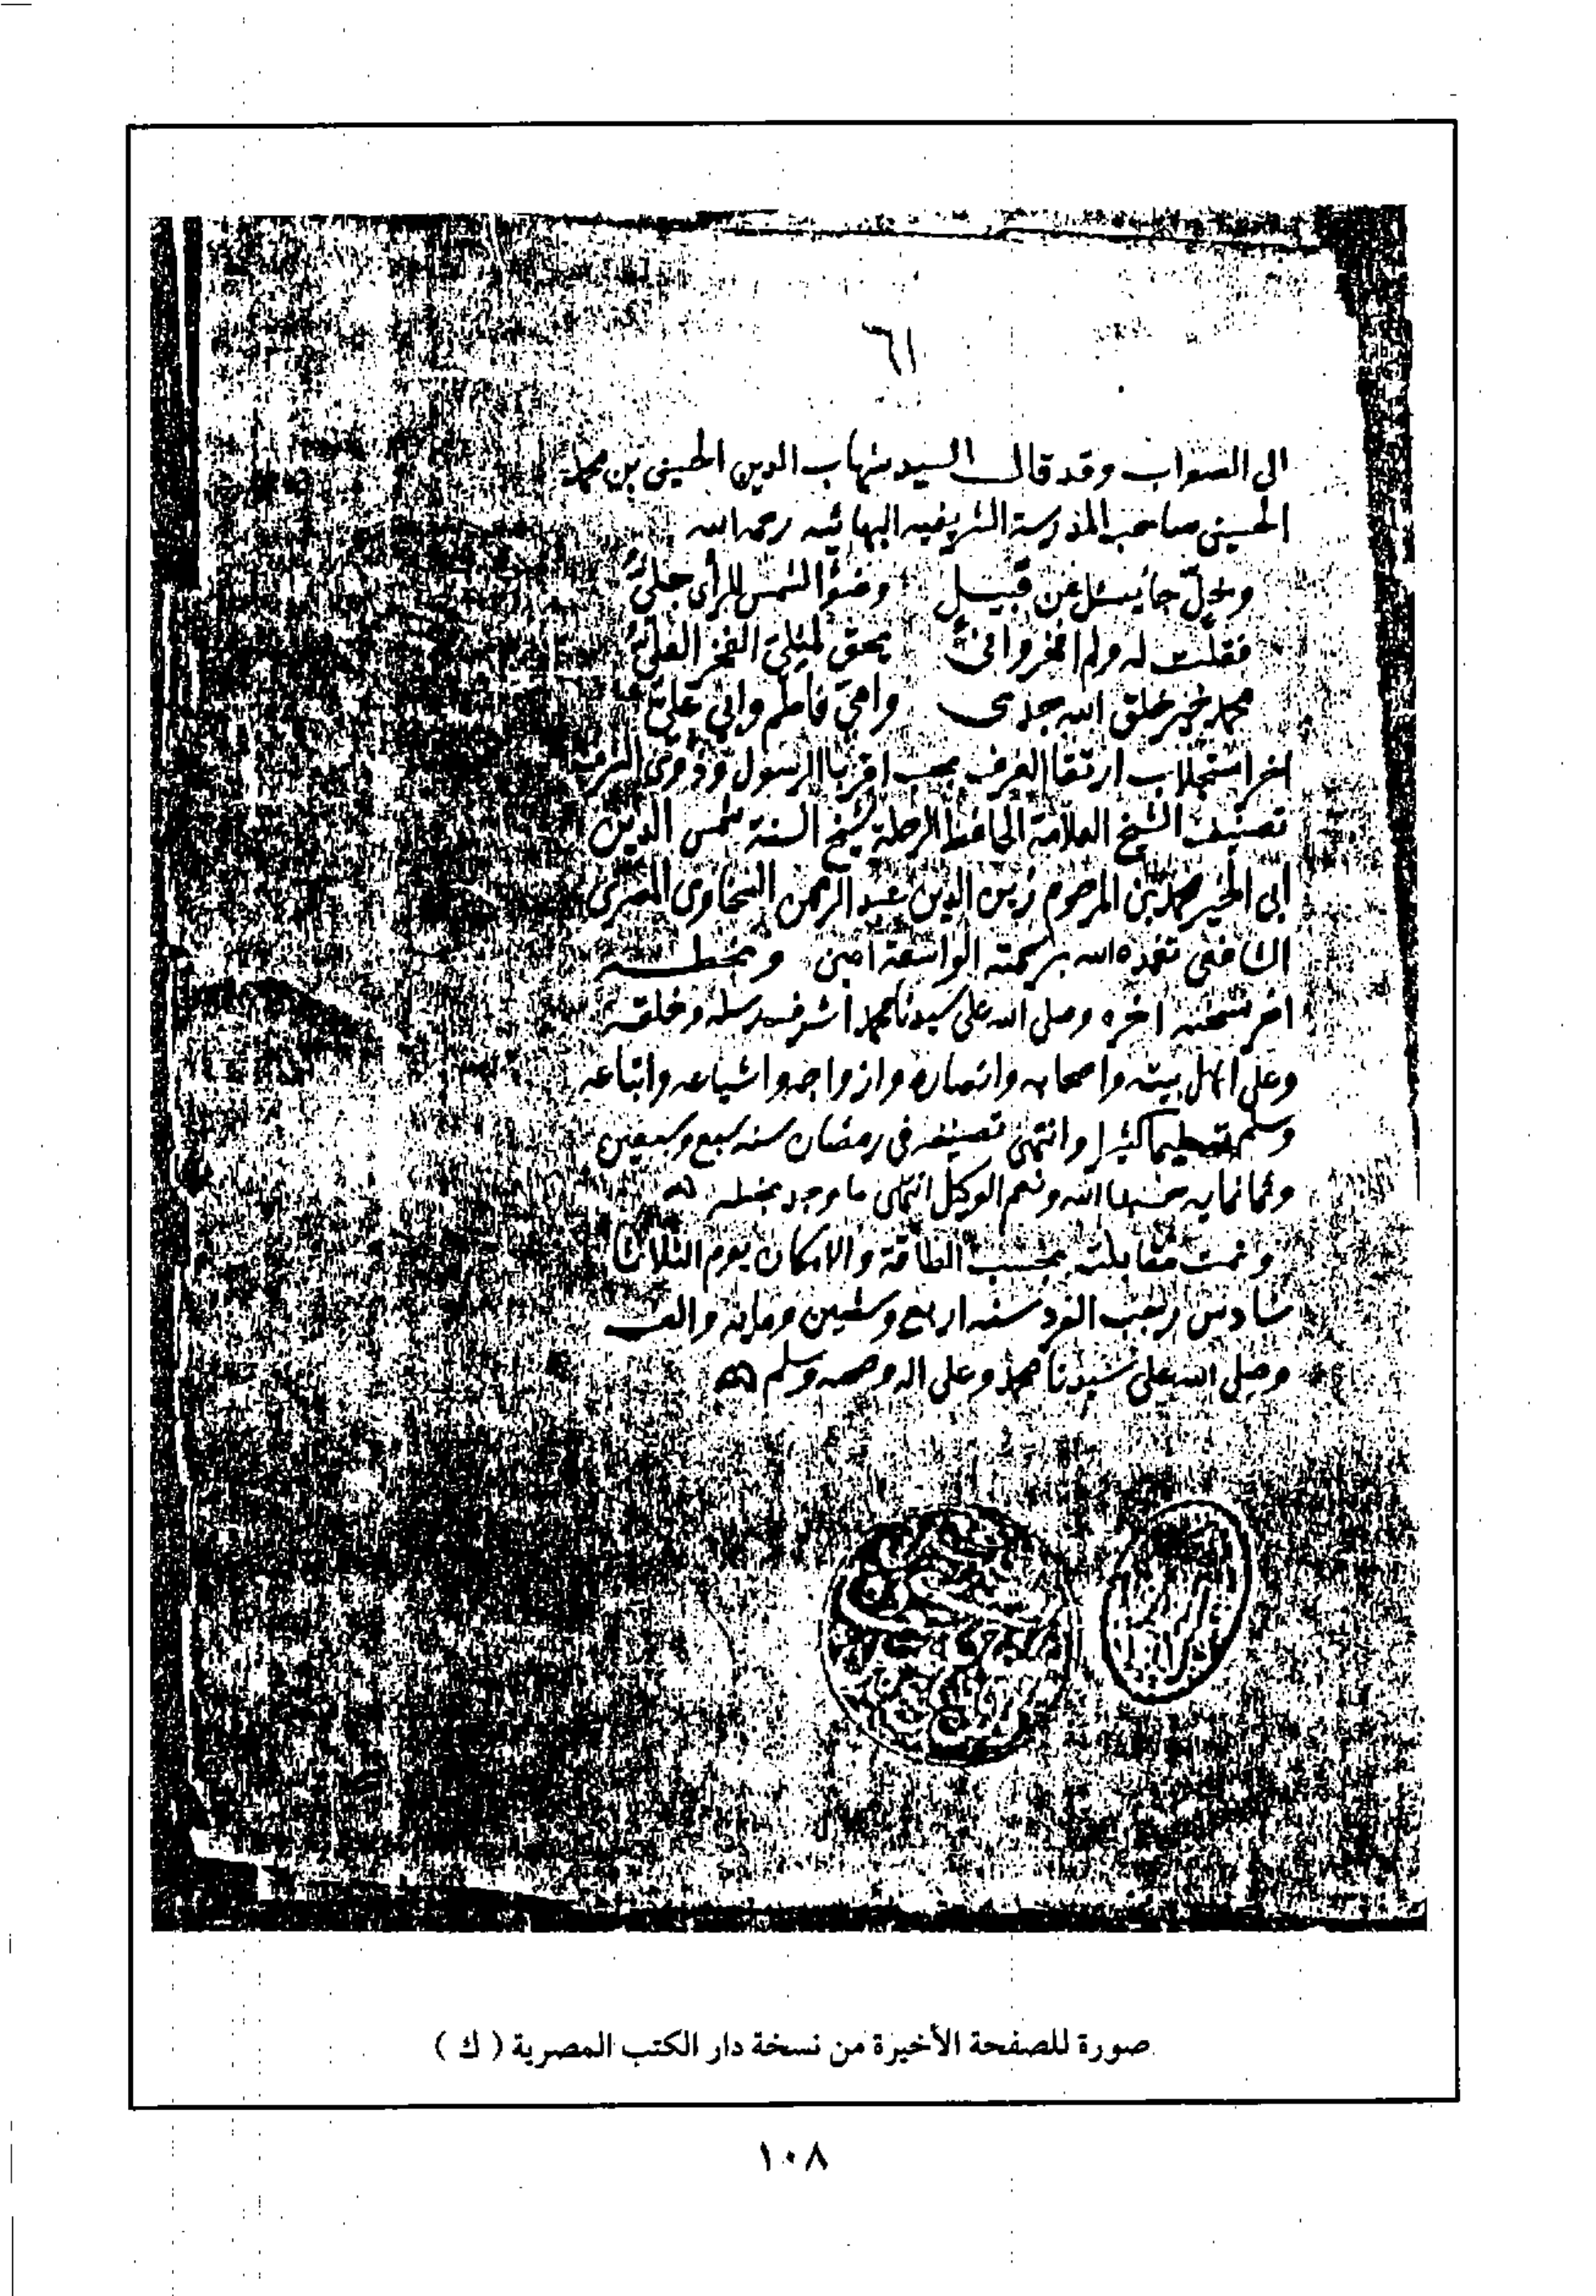 ٦١
الى الصواب وقد قال السيد شهاب الدين الحسينى بن محمد
الحسينى صاحب المدرسة الشريفيه البهائيه رحمه الله
وخلّ جا يسئل عن قبيل وضوء الشمس للرأى جلىّ
فقلت له ولم افخر وانىّ يحق لمثلى الفخر العلىّ
محمد خير خلق الله جدى وامى فاطم وابى علىّ
اخر استجلاب ارتقا الغرف بحب اقربا الرسول وذوى الشرف
تصنيف الشيخ العلامة الحافظ الرحلة شيخ السنة شمس الدين
ابى الخير محمد بن المرحوم زين الدين عبد الرحمن السخاوى المصرى
الشافعى تغمده الله برحمته الواسعة امين وبخطه
اخر نسخته اخره وصلى الله على سيدنا محمد اشرف رسله وخلقه
وعلى اهل بيته واصحابه وانصاره وازواجه واشياعه واتباعه
وسلم تعظيما كثيرا وانتهى تصنيفه فى رمضان سنه سبع وسبعين
وثمانمايه حسبنا الله ونعم الوكيل انتهى ما وجد بخطه
وتمت مقابلته بحسب الطاقة والامكان يوم الثلاثا
سادس رجب الفرد سنه اربع وستين ومايه والف
وصلى الله على سيدنا محمد وعلى اله وصحبه وسلم
صورة للصفحة الأخيرة من نسخة دار الكتب المصرية ( ك )
١٠٨